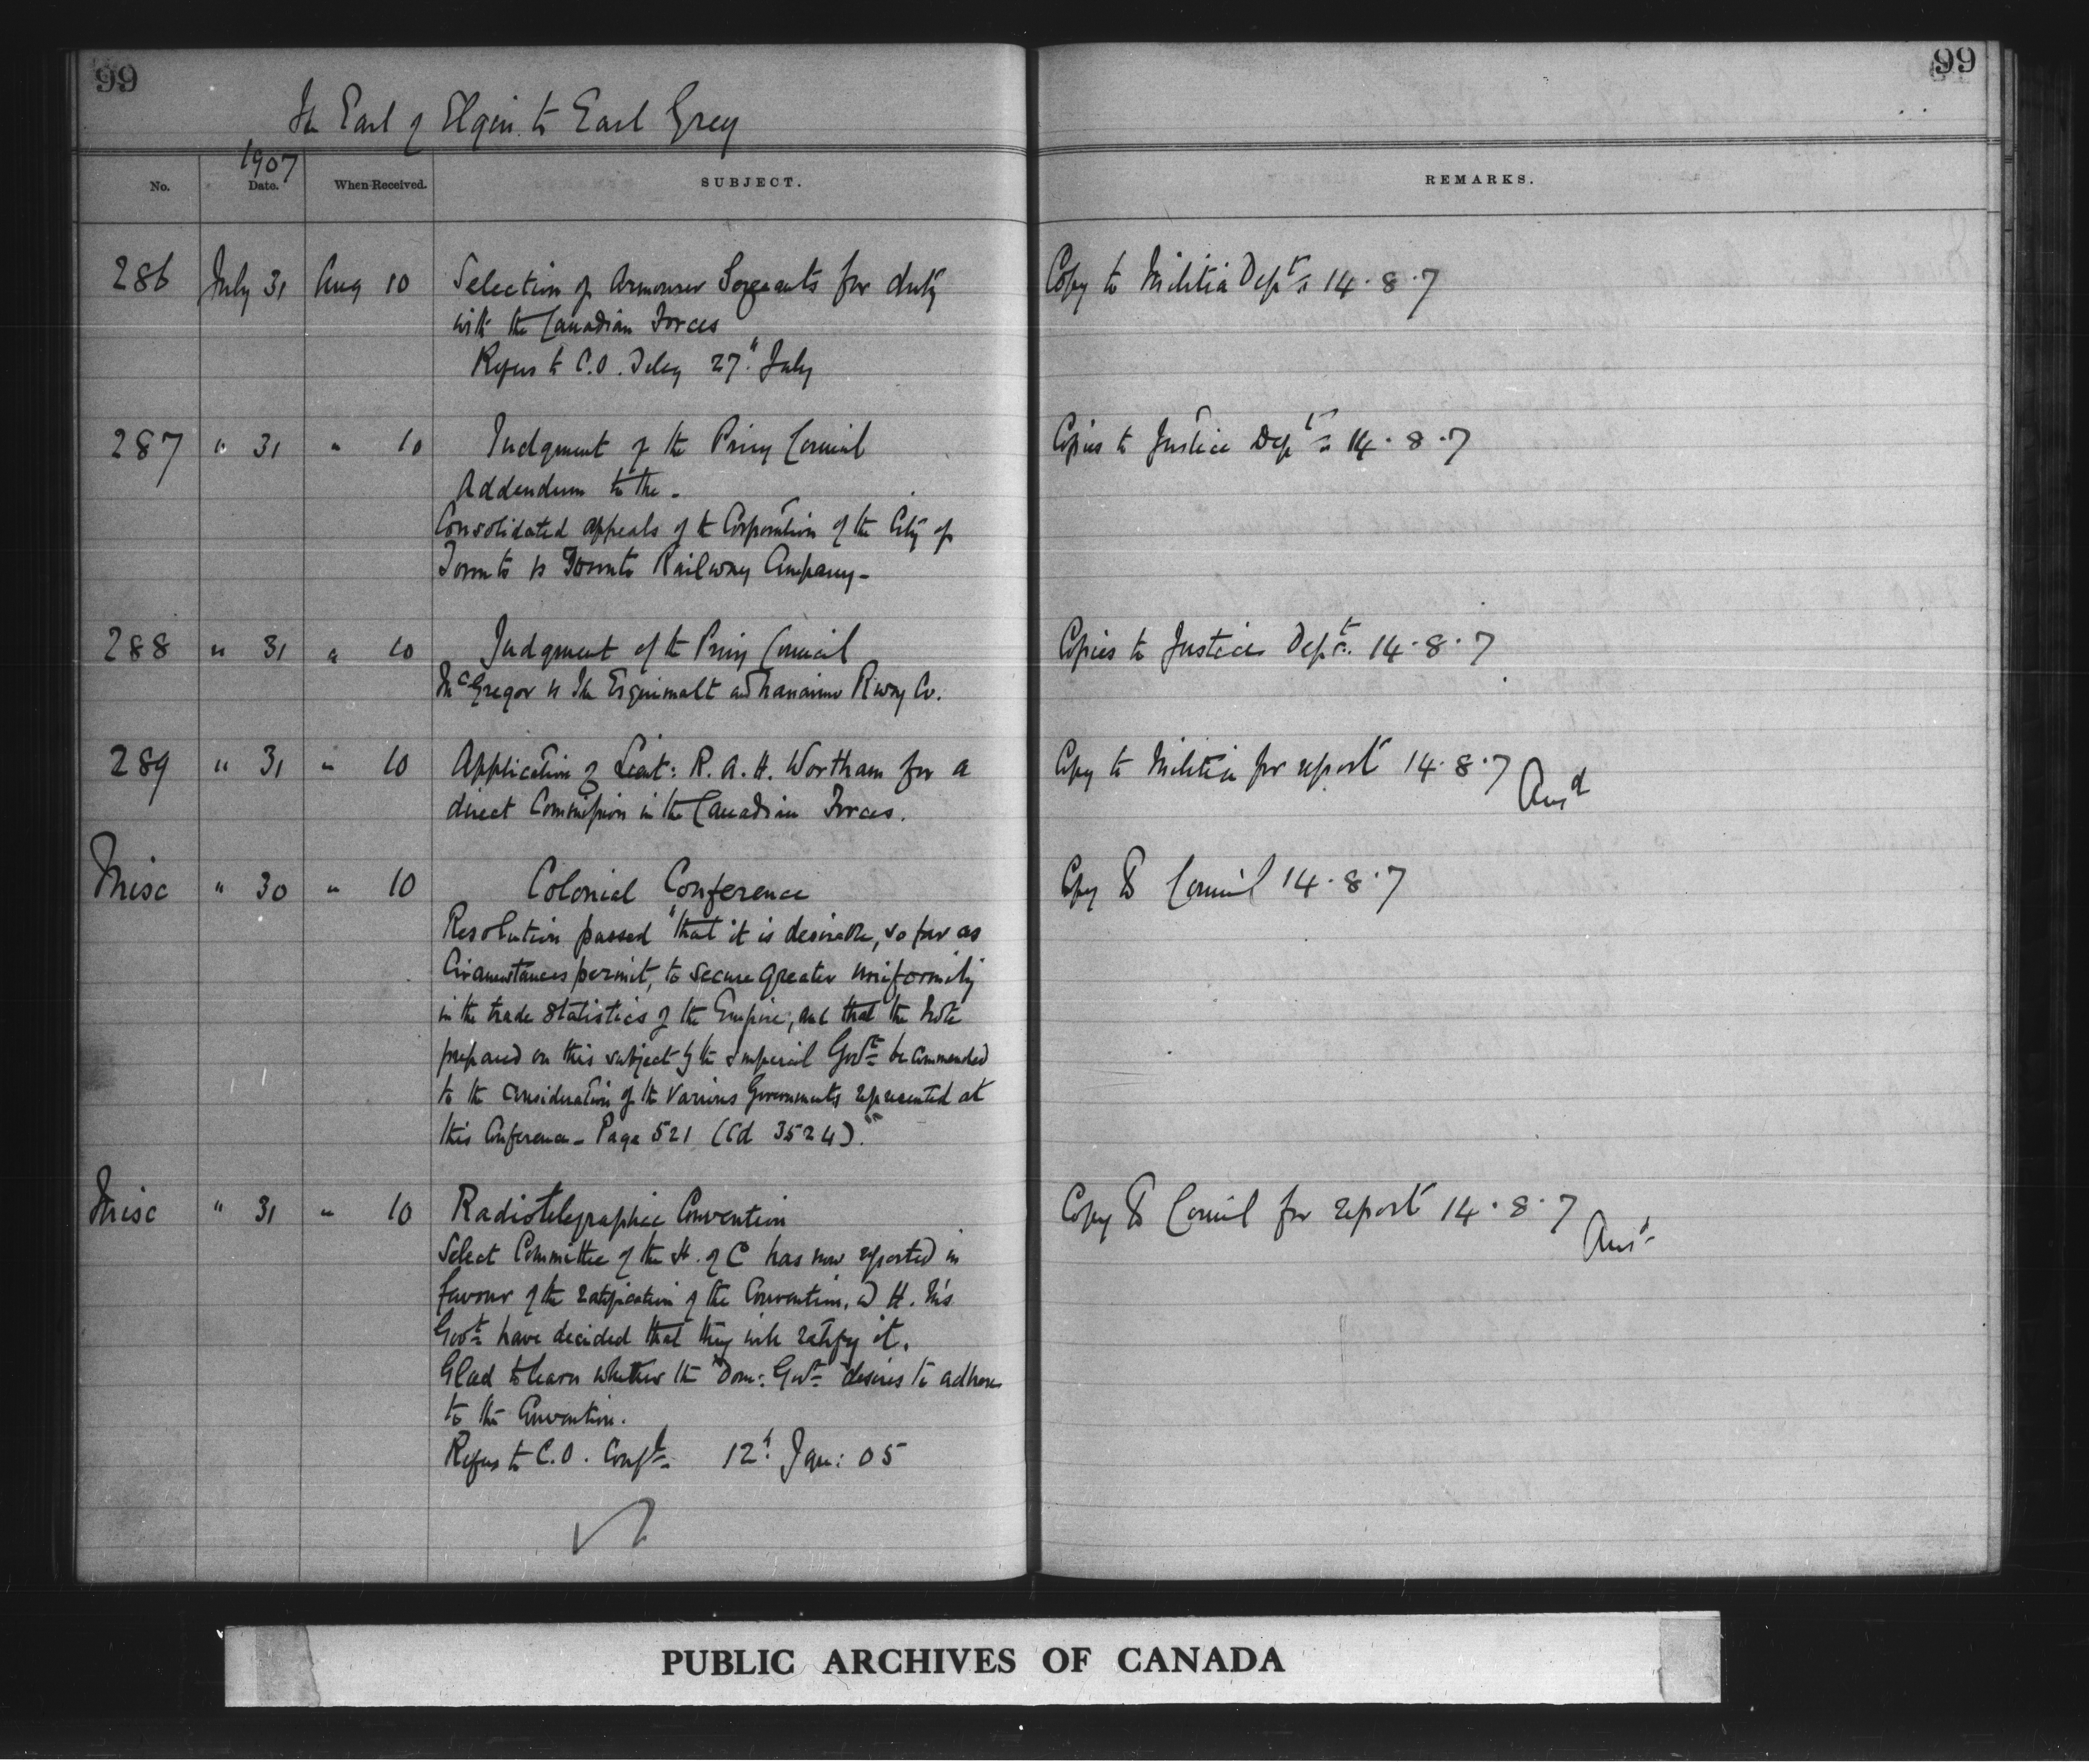 99
99
The Earl of Elgin to Earl Grey
1907
No. Date. When Received. SUBJECT. REMARKS.
286 July 31 Aug 10 Selection of Armourer Sergeants for duty Copy to Militia Dept. 14.8.7
with the Canadian Forces
Refers to C.O. Teleg 27" July
287 " 31 " 10 Judgment of the Privy Council Copies to Justice Dept. 14.8.7
Addendum to the -
Consolidated appeals of the Corporation of the City of
Toronto vs Toronto Railway Company -
288 " 31 " 10 Judgment of the Privy Council Copies to Justice Dept. 14.8.7
McGregor vs The Esquimalt and Nanaimo Rwy Co.
289 " 31 " 10 Application of Lieut: R. A. H. Wortham for a Copy to Militia for report 14.8.7 Ansd
direct Commission in the Canadian Forces.
Misc " 30 " 10 Colonial Conference Copy to Council 14.8.7
Resolution passed "that it is desirable, so far as
Circumstances permit, to secure greater uniformity
in the trade statistics of the Empire, and that the Note
prepared on this subject by the Imperial Govt. be commended
to the consideration of the various Governments represented at
this Conference - Page 521 (Cd 3524)."
Misc " 31 " 10 Radiotelegraphic Convention Copy to Council for report 14.8.7 Ansd
Select Committee of the H. of C has now reported in
favour of the ratification of the Convention, & H. M's
Govt. have decided that they will ratify it.
Glad to learn whether the Dom: Govt. desires to adhere
to the Convention.
Refers to C.O. Confl. 12" Jan: 05
PUBLIC ARCHIVES OF CANADA